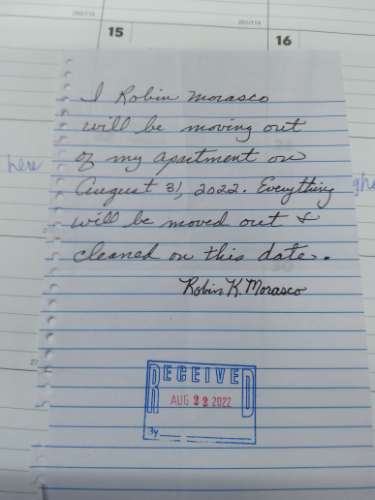 15
16
I Robin Morasco
will be moving out
of my apartment on
August 31, 2022. Everything
will be moved out &
cleaned on this date.
Robin K. Morasco
here
RECEIVED
AUG 2022
By
27